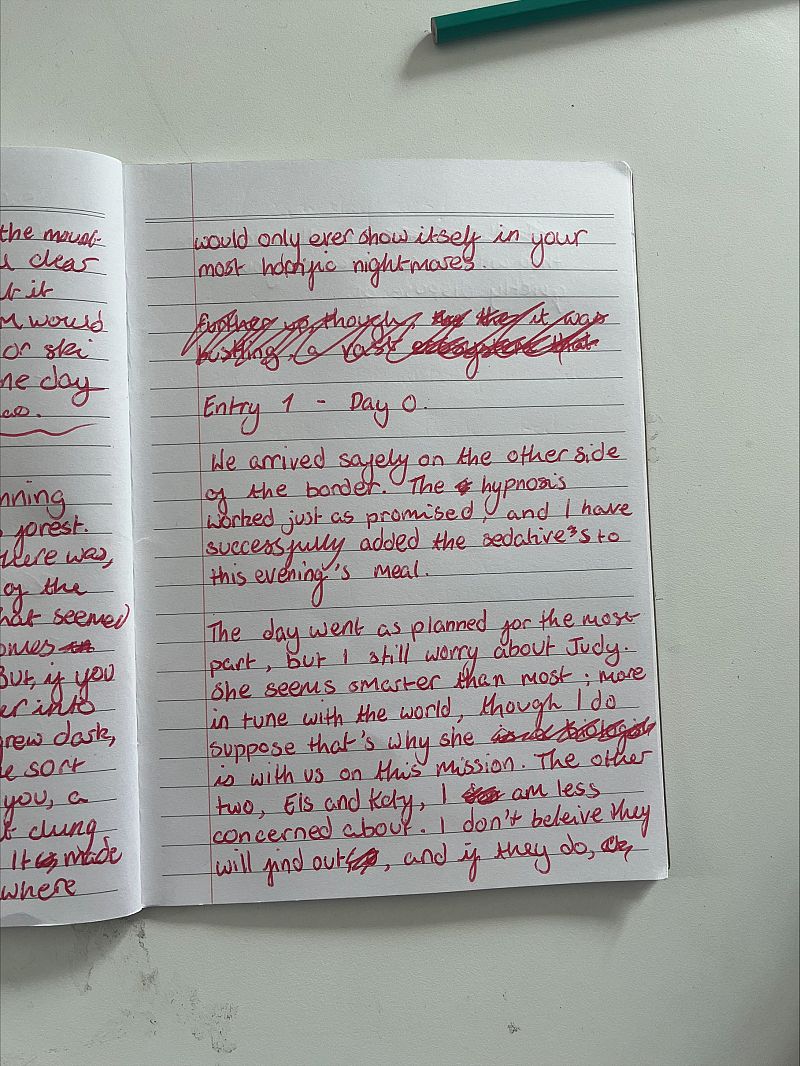 the mount-
clear
t it
would
or ski
ne day
nning
forest.
there was,
of the
hat seemed
omes
But, if you
er into
rew dark,
e sort
you, a
t clung
It made
where
would only ever show itself in your
most horrific nightmares.
further up, though, it was
bustling, a vast ecosystem that
Entry 1 - Day 0.
We arrived safely on the other side
of the border. The hypnosis
worked just as promised, and I have
successfully added the sedative's to
this evening's meal.
The day went as planned for the most
part, but I still worry about Judy.
She seems smarter than most; more
in tune with the world, though I do
suppose that's why she
is with us on this mission. The other
two, Els and Katy, I am less
concerned about. I don't beleive they
will find out, and if they do,